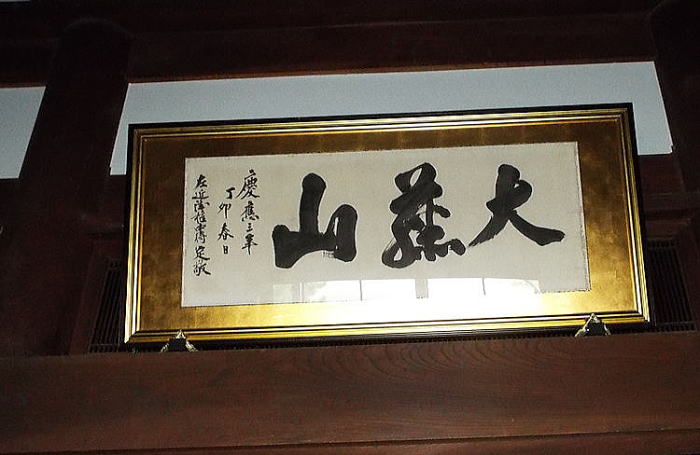 大 山
慶應三年
丁卯春日
左近衛権中将定敬